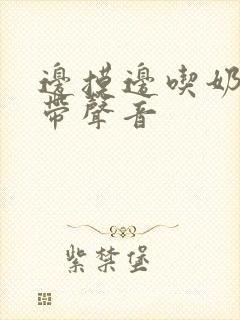 邊摸邊喫奶
帶聲音
紫禁堡